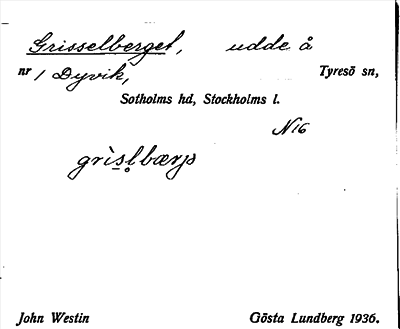 Grisselberget, udde å
nr 1 Dyvik, Tyresö sn,
Sotholms hd, Stockholms l.
N16
grìsl̥bærjs
John Westin Gösta Lundberg 1936.